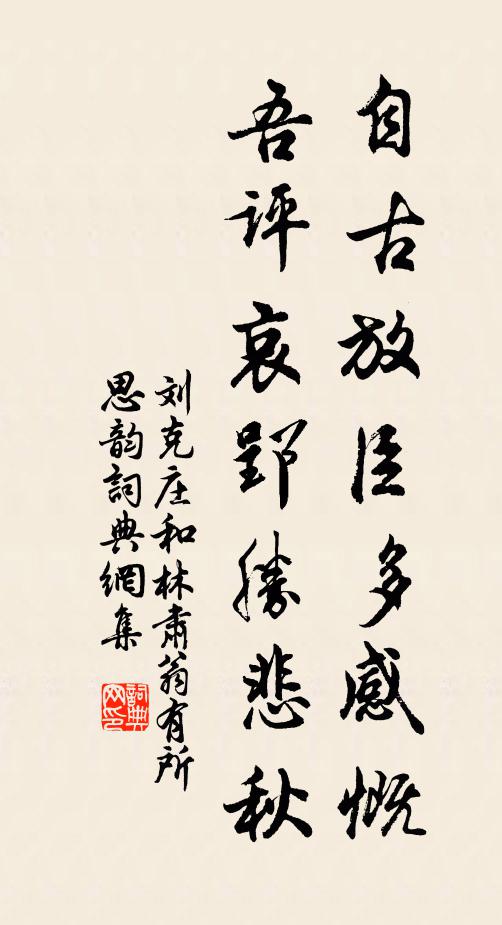 自古放臣多感慨
吾评哀郢勝悲秋
刘克庄和林肃翁有所
思韵詞典網集
詞典网印